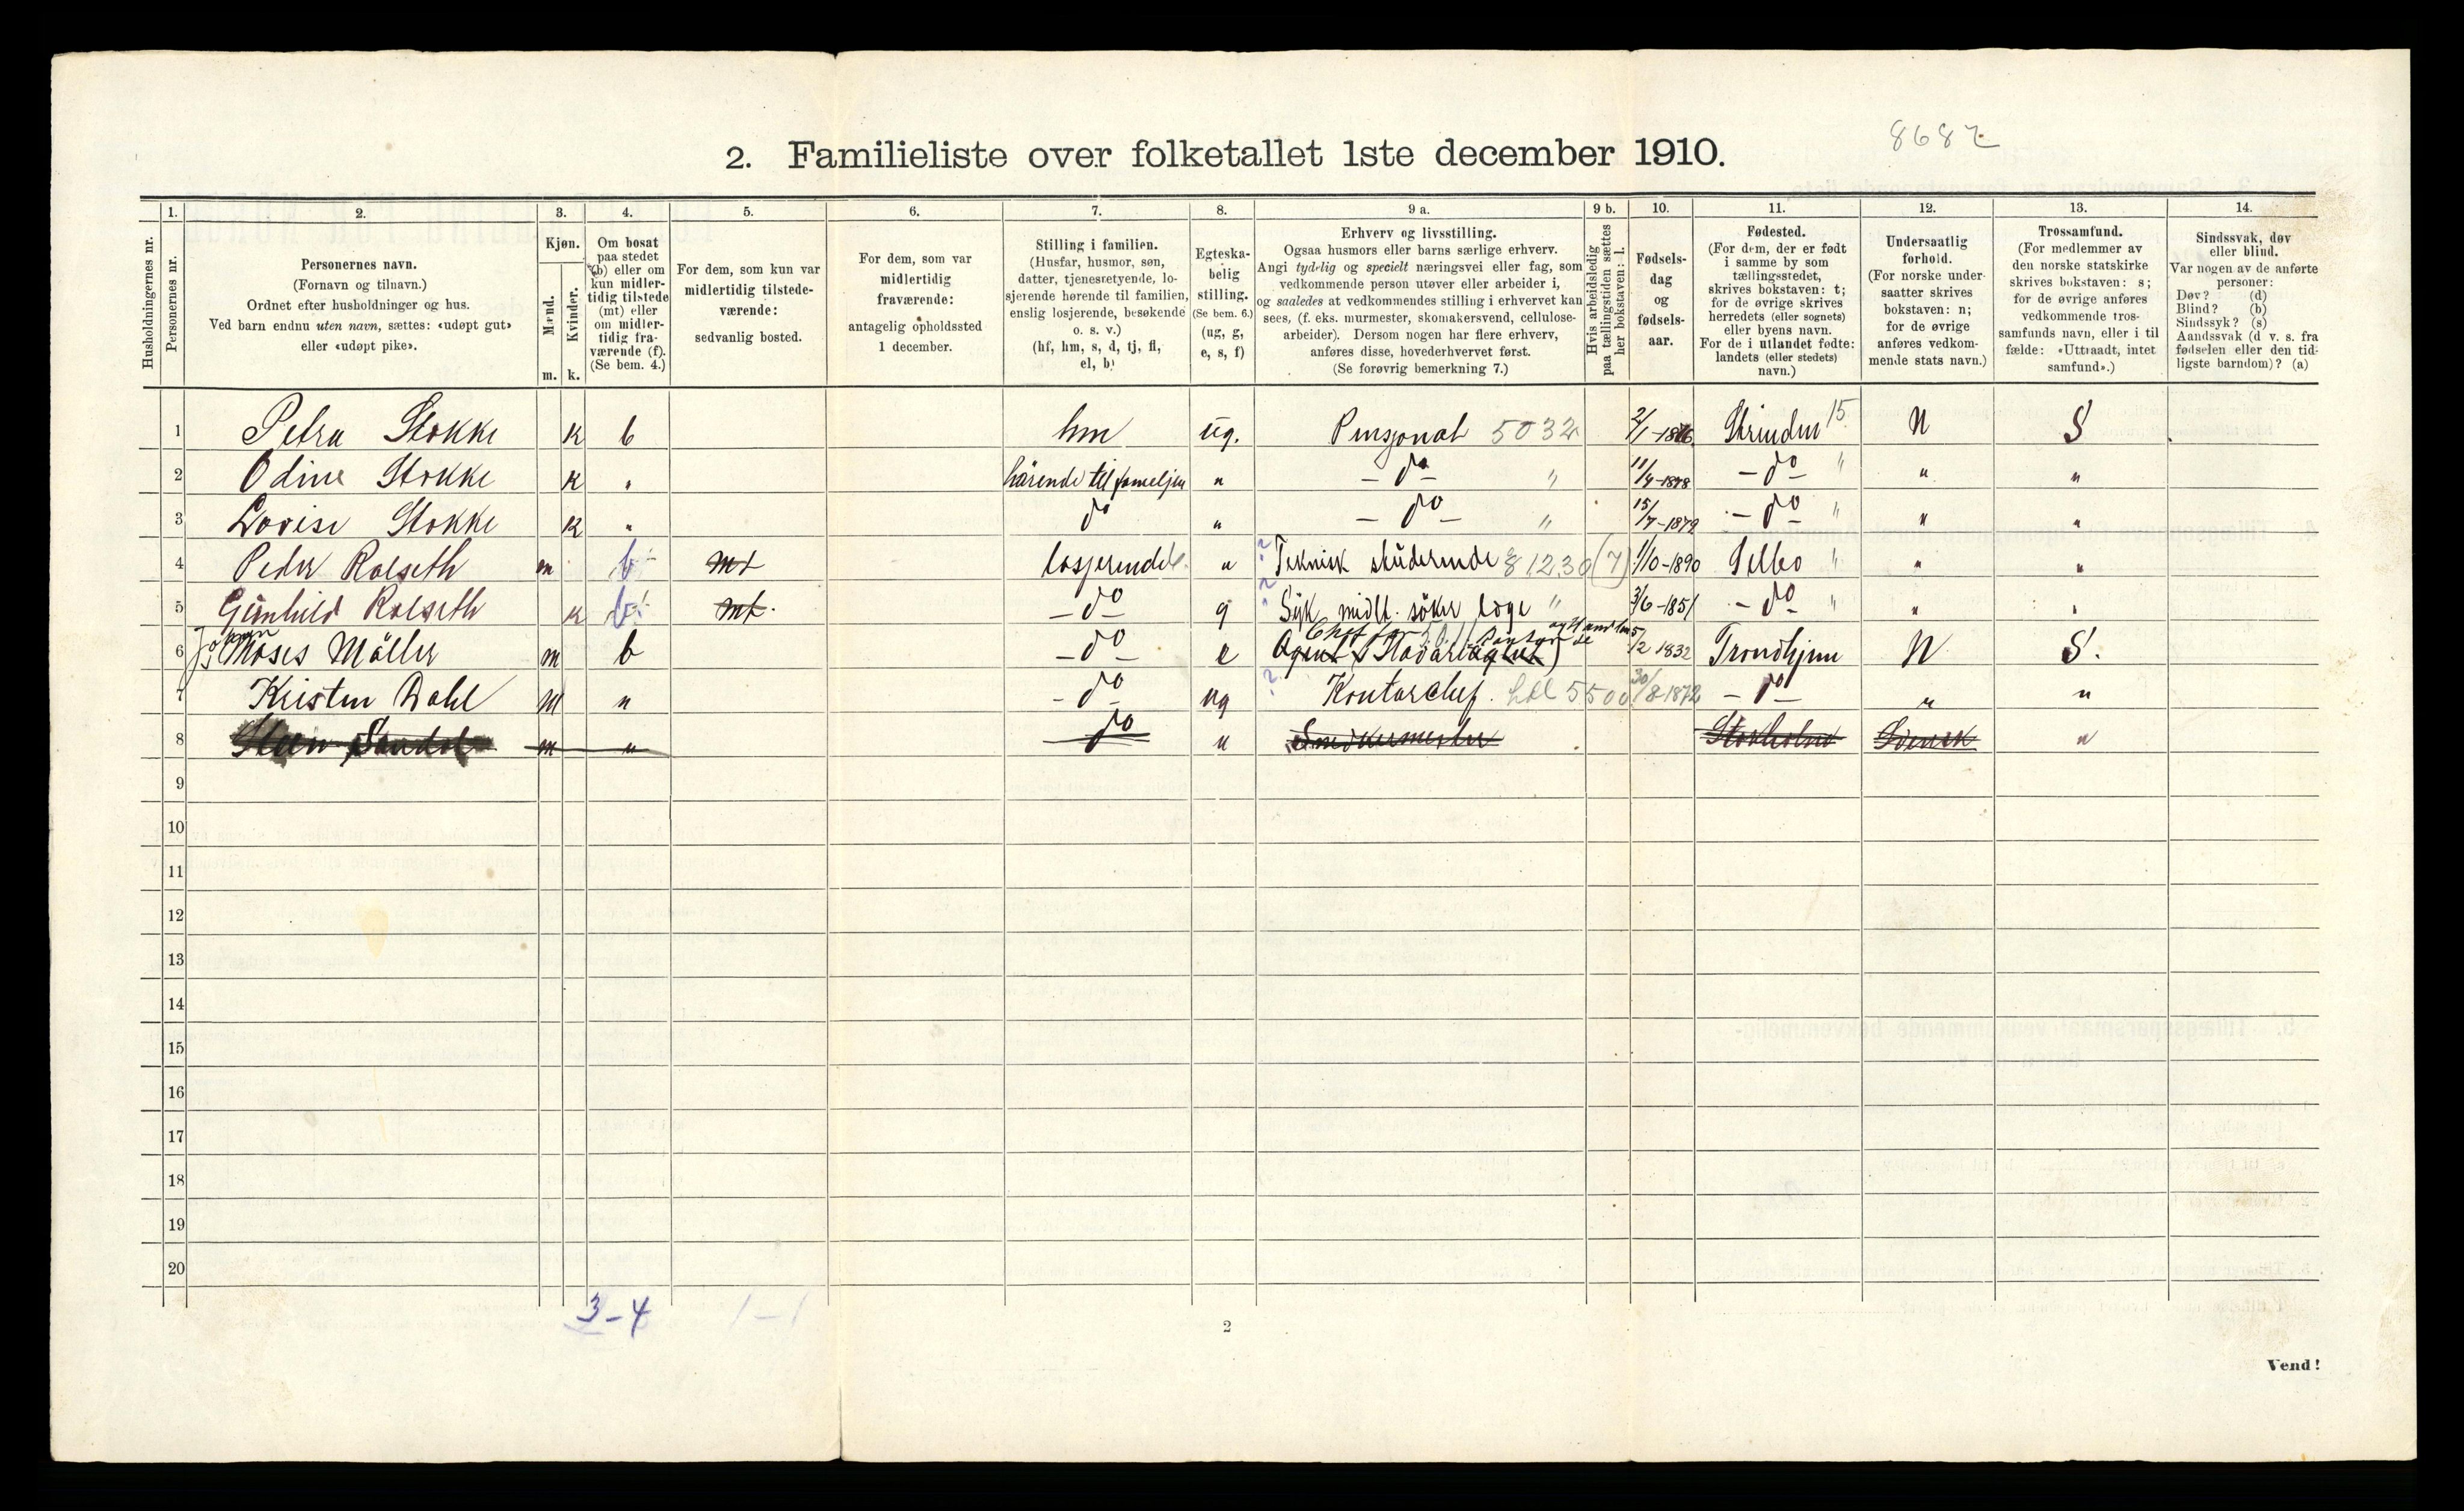 8682
2. Familieliste over folketallet 1ste december 1910.
Husholdningernes nr.
1.
Personernes nr.
2.
Personernes navn.
(Fornavn og tilnavn.)
Ordnet efter husholdninger og hus.
Ved barn endnu uten navn, sættes: «udøpt gut»
eller «udøpt pike».
3.
Kjøn.
Mænd.
Kvinder.
m. k.
4.
Om bosat
paa stedet
(b) eller om
kun midler-
tidig tilstede
(mt) eller
om midler-
tidig fra-
værende (f).
(Se bem. 4.)
5.
For dem, som kun var
midlertidig tilstede-
værende:
sedvanlig bosted.
6.
For dem, som var
midlertidig
fraværende:
antagelig opholdssted
1 december.
7.
Stilling i familien.
(Husfar, husmor, søn,
datter, tjenestetyende, lo-
sjerende hørende til familien,
enslig losjerende, besøkende
o. s. v.)
(hf, hm, s, d, tj, fl,
el, b)
8.
Egteska-
belig
stilling.
(Se bem. 6.)
(ug, g,
e, s, f)
9 a.
Erhverv og livsstilling.
Ogsaa husmors eller barns særlige erhverv.
Angi tydelig og specielt næringsvei eller fag, som
vedkommende person utøver eller arbeider i,
og saaledes at vedkommendes stilling i erhvervet kan
sees, (f. eks. murmester, skomakersvend, cellulose-
arbeider). Dersom nogen har flere erhverv,
anføres disse, hovederhvervet først.
(Se forøvrig bemerkning 7.)
9 b.
Hvis arbeidsledig
paa tællingstiden sættes
her bokstaven: l.
10.
Fødsels-
dag
og
fødsels-
aar.
11.
Fødested.
(For dem, der er født
i samme by som
tællingsstedet,
skrives bokstaven: t;
for de øvrige skrives
herredets (eller sognets)
eller byens navn.
For de i utlandet fødte:
landets (eller stedets)
navn.)
12.
Undersaatlig
forhold.
(For norske under-
saatter skrives
bokstaven: n;
for de øvrige
anføres vedkom-
mende stats navn.)
13.
Trossamfund.
(For medlemmer av
den norske statskirke
skrives bokstaven: s;
for de øvrige anføres
vedkommende tros-
samfunds navn, eller i til
fælde: «Uttraadt, intet
samfund».)
14.
Sindssvak, døv
eller blind.
Var nogen av de anførte
personer:
Døv? (d)
Blind? (b)
Sindssyk? (s)
Aandssvak (d v. s. fra
fødselen eller den tid-
ligste barndom)? (a)
1 Petra Stokke k b hm ug. Pensjonat 5032 2/1-1876 Strinden 15 N S
2 Odine Stokke k " hörende til fameljen " - do - " 11/4-1878 - do - " " "
3 Lovise Stokke k " do " - do - " 15/7-1879 - do - " " "
4 Peder Rolseth m b mt losjerende " Teknisk studerende 81230 (7) 1/10-1890 Selbo " " "
5 Gunhild Rolseth k b mt. - do - g Syk midlt. söker læge " 3/6-1851 - do - " " "
6 Johan Moses Möller m b - do - e Agent 5/2 1832 Trondhjem N S.
7 Kristen Dahl m " - do - ug Kontorchef. 5500 30/8-1872 - do - " "
8 Steen Sandol m " do " Snedkermester Stokholm Svensk "
9
10
11
12
13
14
15
16
17
18
19
20
3-4 1-1
2
Vend!